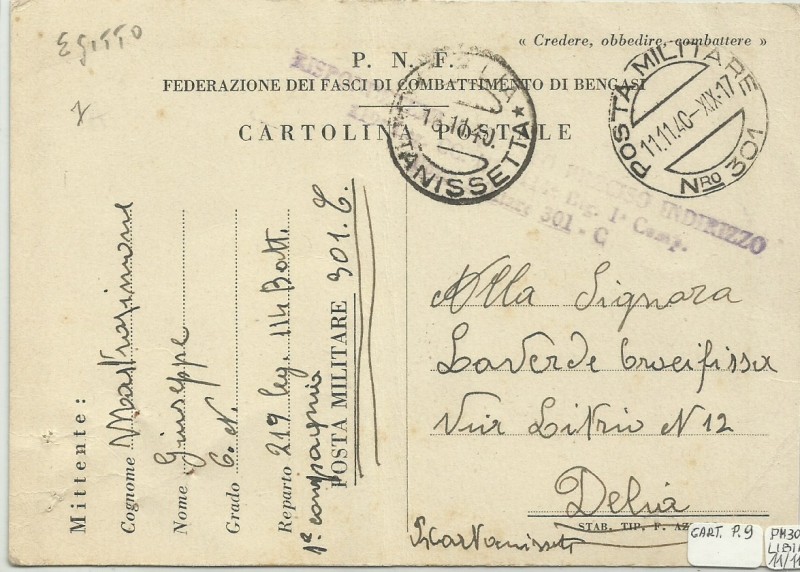 EGITTO
« Credere, obbedire, combattere »
P. N. F.
FEDERAZIONE DEI FASCI DI COMBATTIMENTO DI BENGASI
CARTOLINA POSTALE
POSTA MILITARE
11.11.40-XIX-17
NRO 301
INDIRIZZO
1ª Comp.
301 - C
Mittente:
Cognome
Nome Giuseppe
Grado C. N.
Reparto 219 leg. 114 Batt.
1ª compagnia
POSTA MILITARE 301. C
Alla Signora
LaVerde Crocifissa
Via Litrio N 12
Delia
STAB. TIP. F. AZ
CART. P.9
PM30
LIBIA
11/11